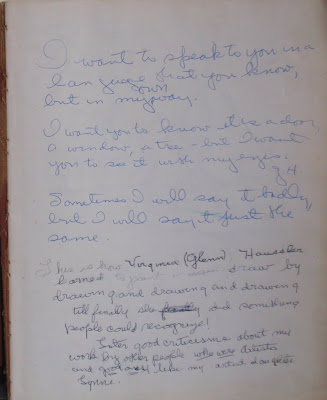 I want to speak to you in a
language that you know,
own
but in my way.
I want you to know it is a door,
a window, a tree - but I want
you to see it with my eyes.
g H
Sometimes I will say it badly,
but I will say it just the
same.
This is how Virginia (Glenn) Haussler
learned to draw by
drawing and drawing and drawing
till finally she did something
people could recognize!
Later good criticisms about my
work by other people who were artists
and good ones, like my artist daughter
Lynne.